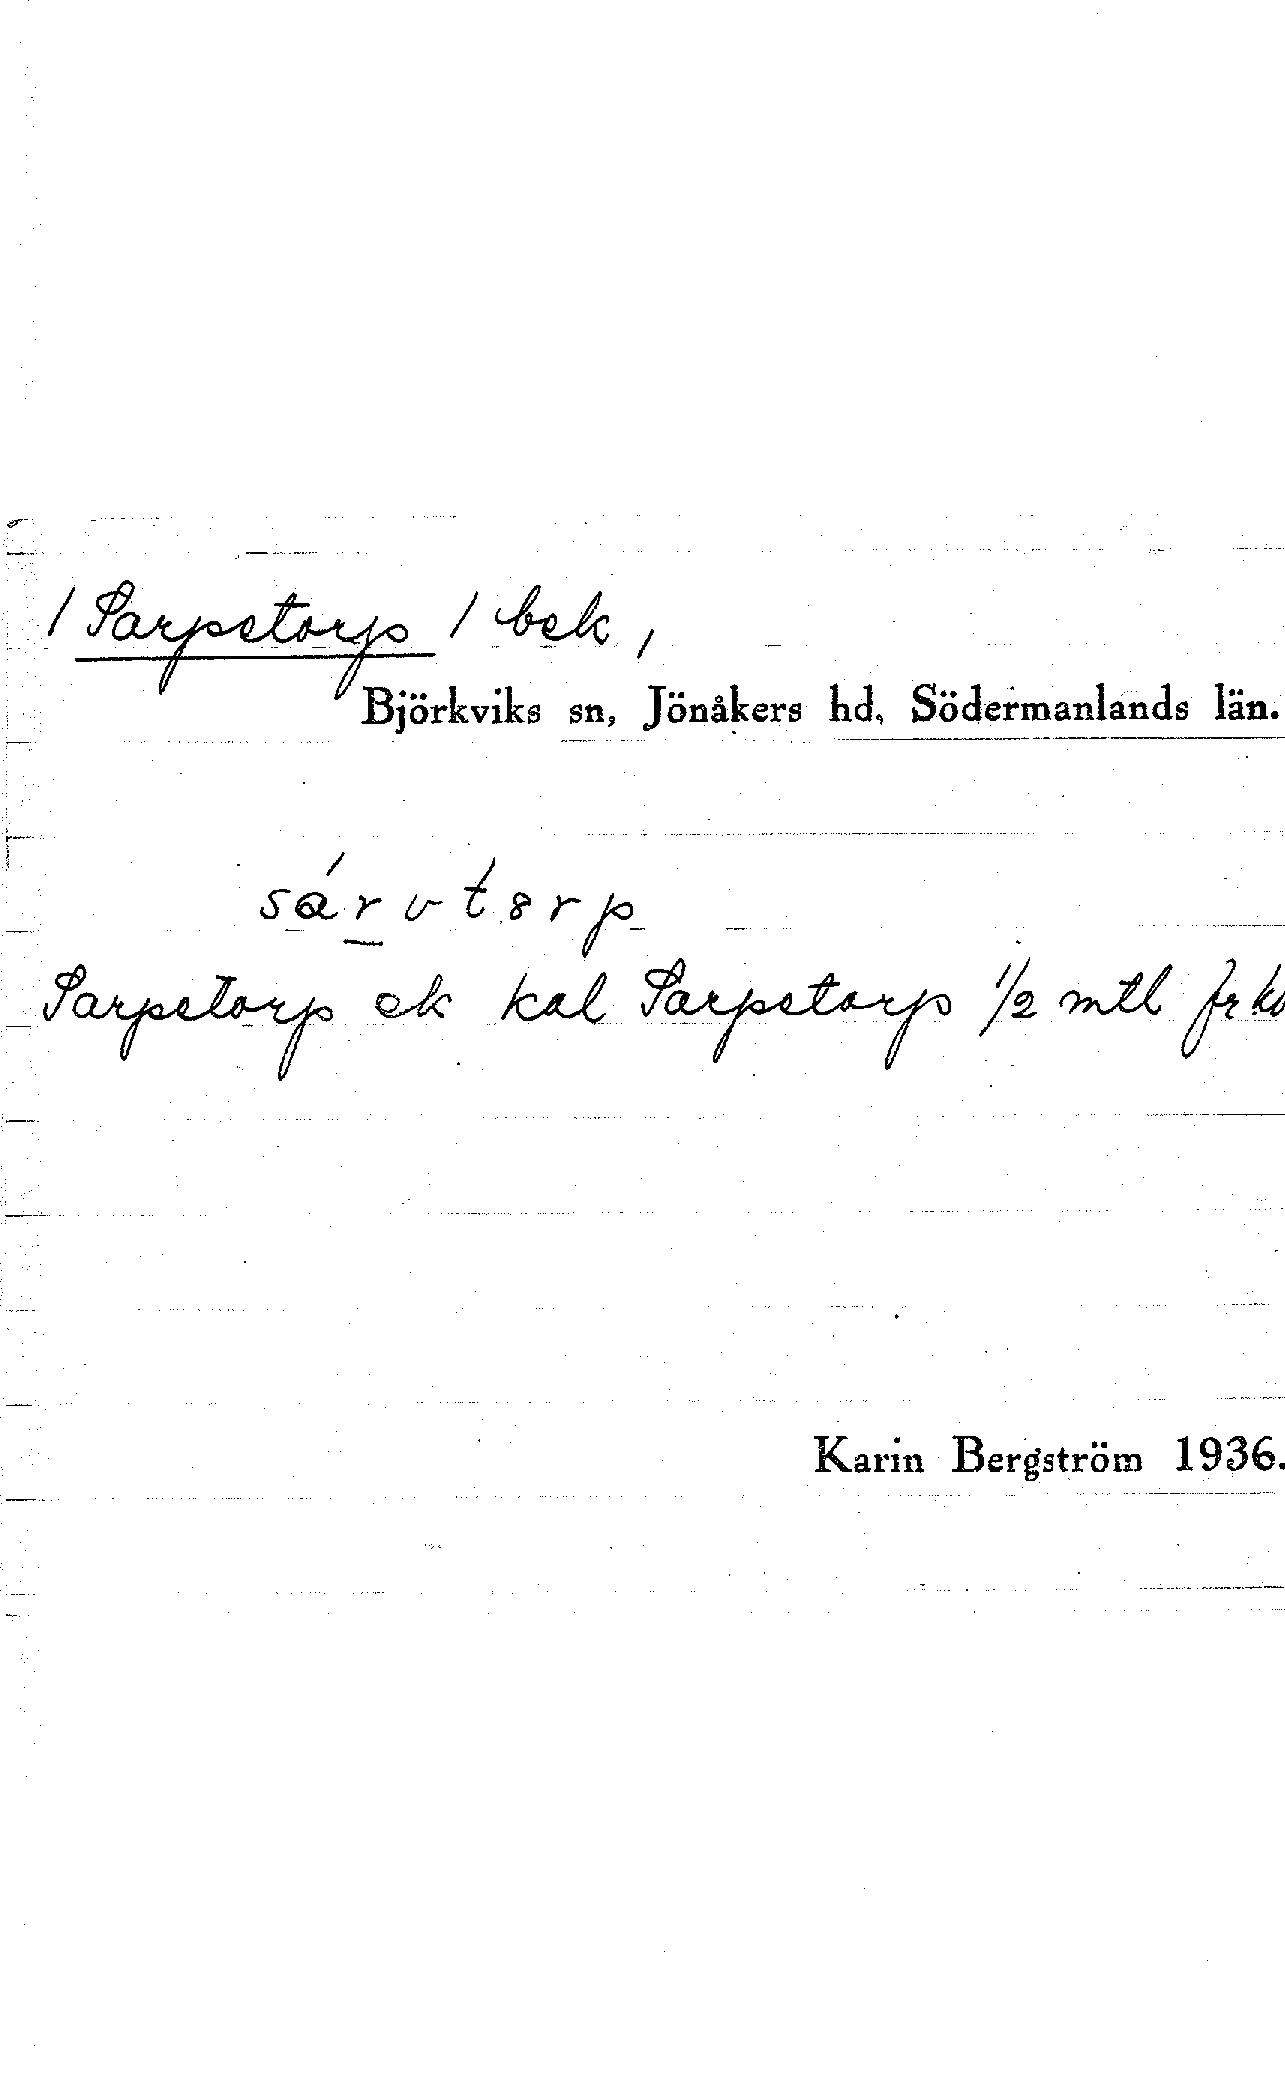 / Sarpetorp / bek,
Björkviks sn, Jönåkers hd, Södermanlands län.
Sarpetorp ek kal Sarpetorp 1/2 mtl fr
Karin Bergström 1936.